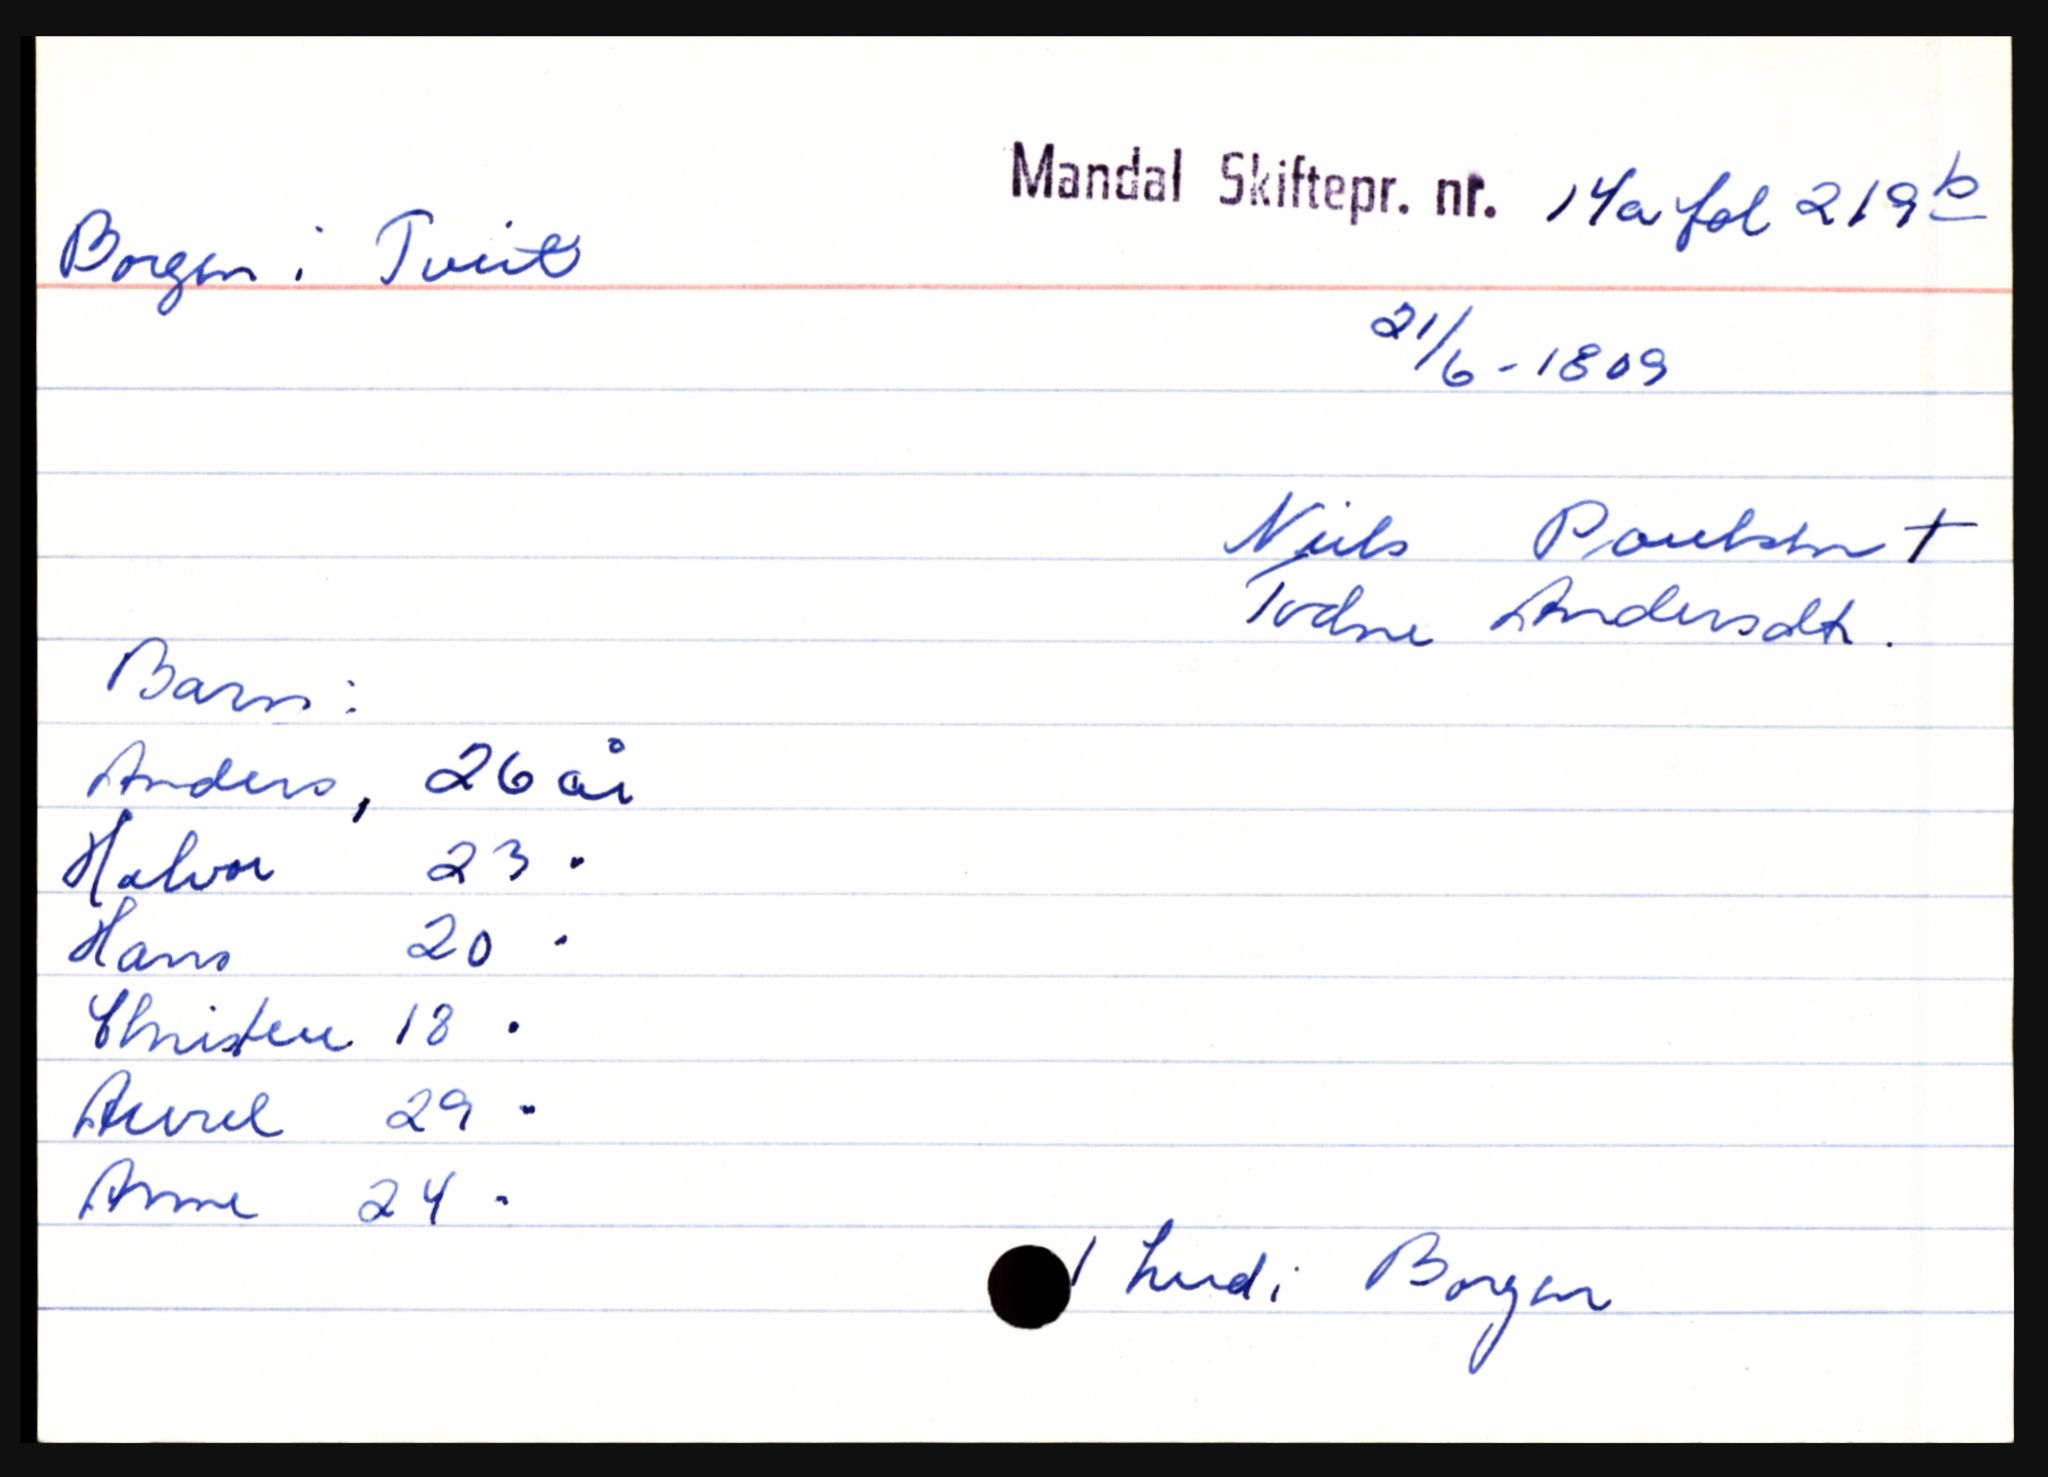 Mandal Skiftepr. nr. 14a fol 219b
Borgen i Tveit
21/6-1809
Niels Poulsen †
Todne Andersdt.
Barn:
Anders, 26 år
Halvor 23 "
Hans 20 "
Christen 18 "
29 "
Anne 24 "
1 hud i Borgen